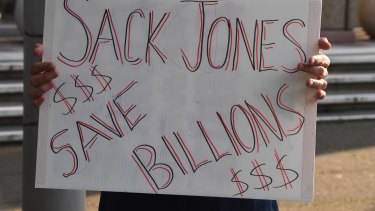 SACK JONES
$$$
SAVE
BILLIONS
$$$